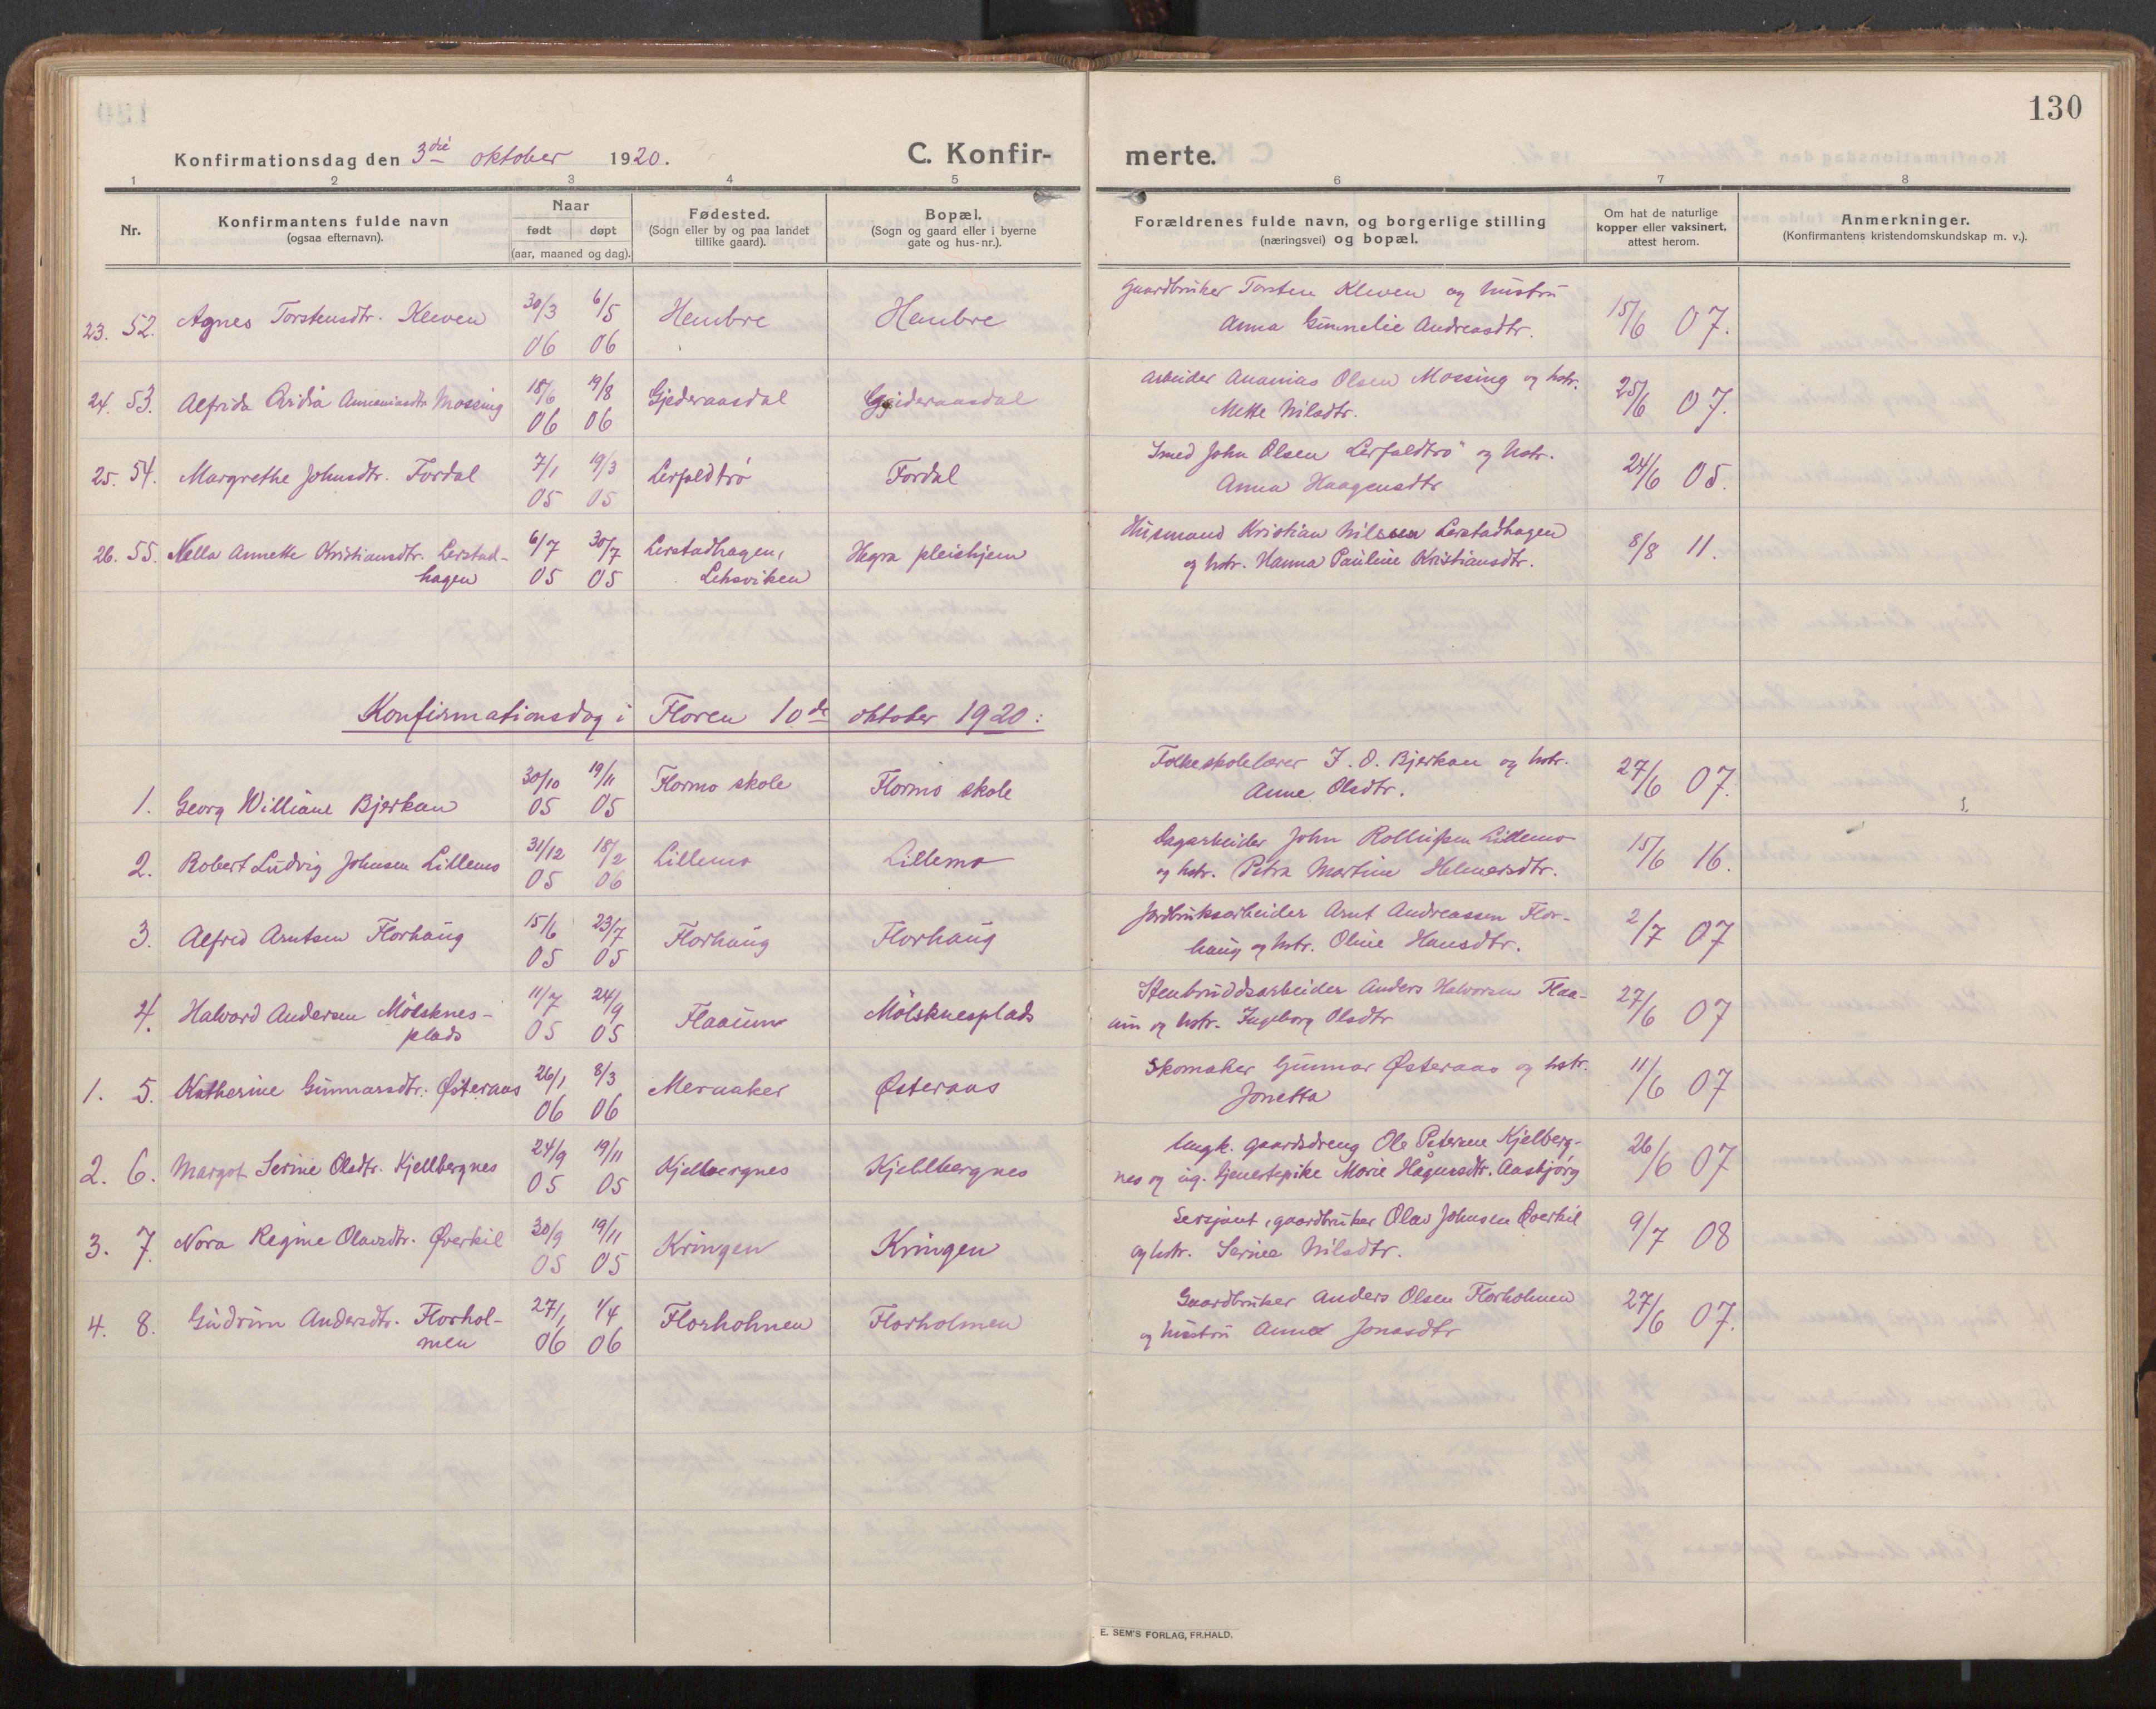 130
Konfirmationsdag den 3die oktober 1920.
C. Konfir-
merte.
1 2 3 4 5 6 7 8
Nr.
Konfirmantens fulde navn
(ogsaa efternavn).
Naar
født døpt
(aar, maaned og dag).
Fødested.
(Sogn eller by og paa landet
tillike gaard).
Bopæl.
(Sogn og gaard eller i byerne
gate og hus-nr.).
Forældrenes fulde navn, og borgerlige stilling
(næringsvei) og bopæl.
Om hat de naturlige
kopper eller vaksinert,
attest herom.
Anmerkninger.
(Konfirmantens kristendomskundskap m. v.).
23. 52. Agnes Torstensdtr. Kleven 30/3 06 6/5 06 Hembre Hembre
Gaardbruker Torsten Kleven og hustru
Anna Gunnelie Andreasdtr. 15/6 07.
24. 53. Alfrida Ananiasdtr. Mossing 18/6 06 19/8 06 Gjederaasdal Gjederaasdal
Arbeider Ananias Olsen Mossing og hstr.
Mette Nilsdtr. 25/6 07.
25. 54. Margrethe Johnsdtr. Fordal 7/1 05 19/3 05 Lerfaldtrø Fordal
Smed John Olsen Lerfaldtrø og hstr.
Anna Haagensdtr 24/6 05.
26. 55. Nella Annette Kristiansdtr. Lerstad-
hagen 6/7 05 30/7 05 Lerstadhagen,
Leksviken Hegra pleiehjem
Husmand Kristian Nilssen Lerstadhagen
og hstr. Hanna Pauline Kristiansdtr. 8/8 11.
Konfirmationsdag i Floren 10de oktober 1920:
1. Georg Williane Bjerkan 30/10 05 19/11 05 Flormo skole Flormo skole
Folkeskolelærer J. O. Bjerkan og hstr.
Anne Olsdtr. 27/6 07.
2. Robert Ludvig Johnsen Lillemo 31/12 05 18/2 06 Lillemo Lillemo
Dagarbeider John Rollufsen Lillemo
og hstr. Petra Martine Helmersdtr. 15/6 16.
3. Alfred Arntsen Florhaug 15/6 05 23/7 05 Florhaug Florhaug
Jordbruksarbeider Arnt Andreassen Flor-
haug og hstr. Oline Hansdtr. 2/7 07
4. Halvard Andersen Mölsknes-
plads 11/7 05 24/9 05 Flaaum Mölsknesplads
Stenbruddsarbeider Anders Halvorsen Flaa-
um og hstr. Ingeborg Olsdtr 27/6 07
1. 5. Katherine Gunnarsdtr. Østeraas 26/1 06 8/3 06 Meraaker Østeraas
Skomaker Gunnar Østeraas og hstr.
Jonetta 11/6 07
2. 6. Margot Serine Olsdtr. Kjellbergnes 24/9 05 19/11 05 Kjelbergnes Kjellbergnes
Ungk. gaardsdreng Ole Petersen Kjelberg-
nes og ug. tjenestepike Marie Hågensdtr. Aasbjørg 26/6 07
3. 7. Nora Regine Olavsdtr. Øverkil 30/9 05 19/11 05 Kringen Kringen
Sersjant, gaardbruker Olav Johnsen Øverkil
og hstr. Serine Nilsdtr. 9/7 08
4. 8. Gudrun Andersdtr. Florhol-
men 27/1 06 1/4 06 Florholmen Florholmen
Gaardbruker Anders Olsen Florholmen
og hustru Anna Jonasdtr 27/6 07.
E. SEM'S FORLAG, FR.HALD.